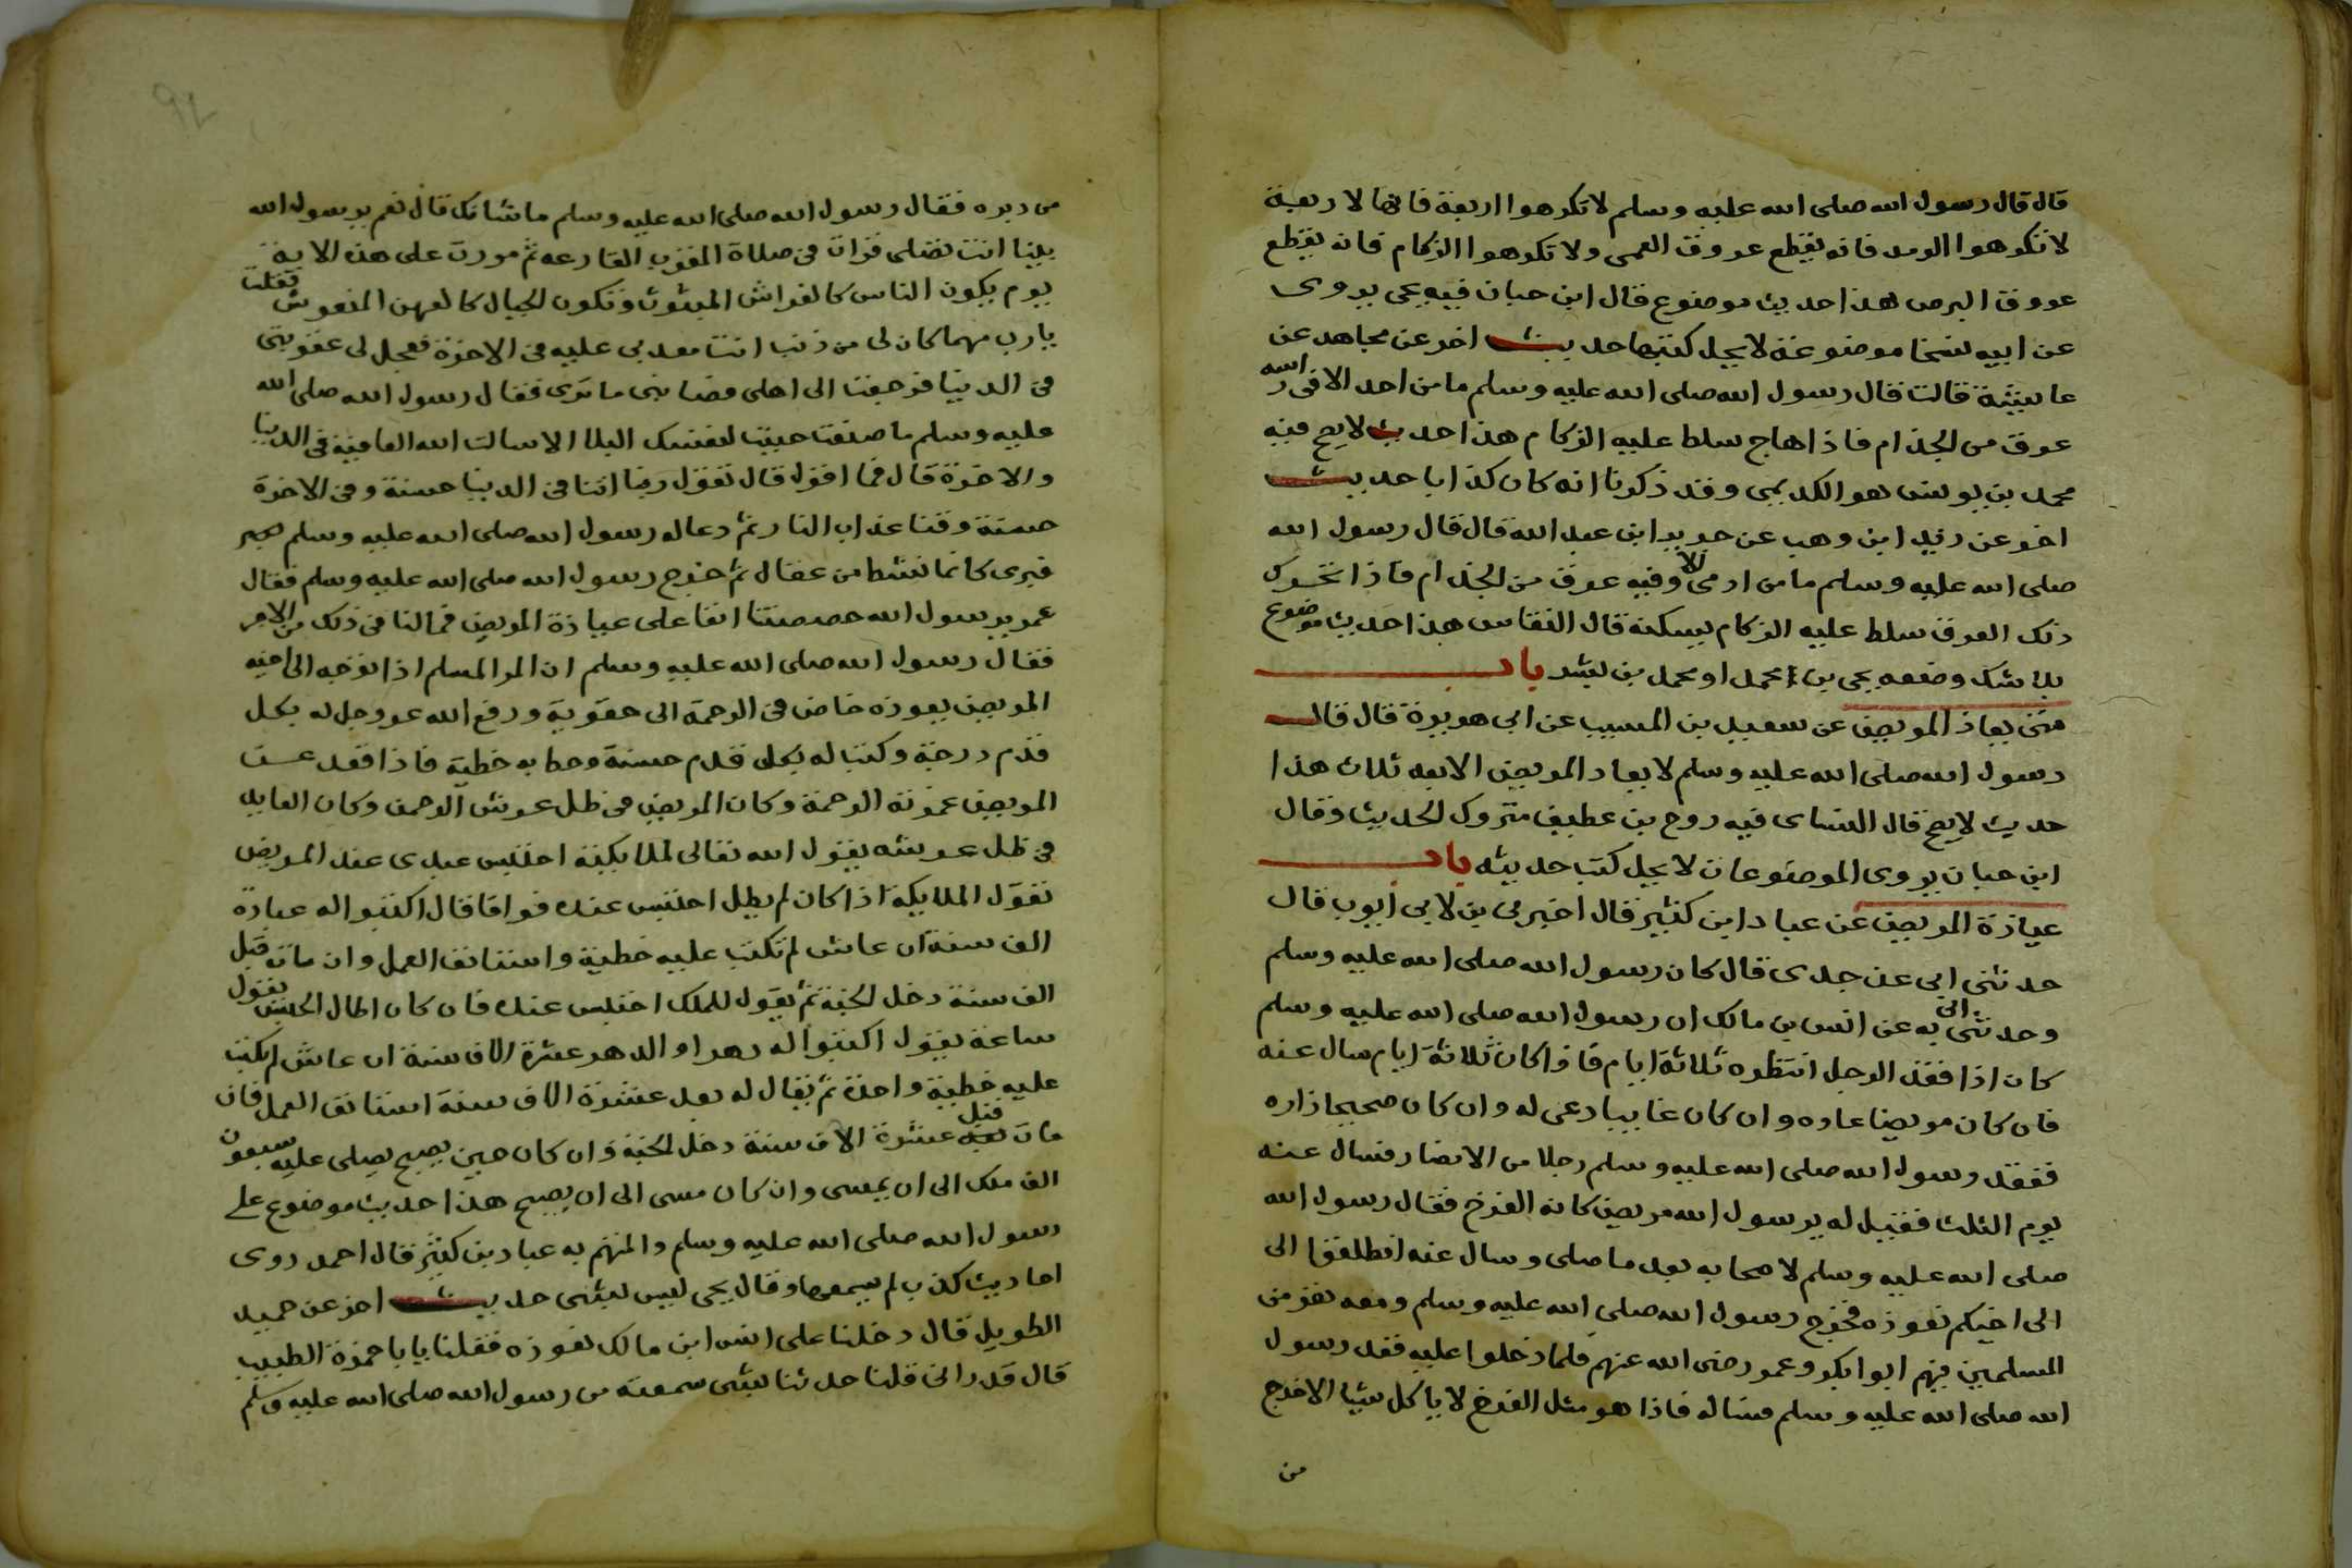 قال قال رسول الله صلى الله عليه وسلم لا تكرهوا اربعة فانها لا ربعة
لا تكرهوا الرمد فانه يقطع عروق العمى ولا تكرهوا الزكام فانه يقطع
عروق البرص هذا حديث موضوع قال ابن حبان فيه يحى يروى
عن ابيه نسخا موضوعة لا يحل كتبها حديث اخر عن مجاهد عن
عايشة قالت قال رسول الله صلى الله عليه وسلم ما من احد الا فى راسه
عرق من الجذام فاذا هاج سلط عليه الزكام هذا حديث لا يصح فيه
محمد بن يونس هو الكديمى وقد ذكرنا انه كان كذابا حديث
اخر عن رند ابن وهب عن جرير ابن عبد الله قال قال رسول الله
صلى الله عليه وسلم ما من ادمى الا وفيه عرق من الجذام فاذا تحرك
ذلك العرق سلط عليه الزكام يسكنه قال النقاس هذا حديث موضوع
بلا شك وضعه يحى بن محمد او محمد بن بشر باب
متى يعاد المريض عن سعيد بن المسيب عن ابى هريرة قال قال
رسول الله صلى الله عليه وسلم لا يعاد المريض الا بعد ثلاث هذا
حديث لا يصح قال النساى فيه روح بن عطيف متروك الحديث وقال
ابن حبان يروى الموضوعات لا يحل كتب حديثه باب
عيادة المريض عن عباد ابن كثير قال اخبرنى بن لابى ايوب قال
حدثنى ابى عن جدى قال كان رسول الله صلى الله عليه وسلم
وحدثنى ابى به عن انس بن مالك ان رسول الله صلى الله عليه وسلم
كان اذا فقد الرجل انتظره ثلاثة ايام فاذا كان ثلاثة ايام سال عنه
فان كان مريضا عاده وان كان غايبا دعى له وان كان صحيحا زاره
ففقد رسول الله صلى الله عليه وسلم رجلا من الانصار فسال عنه
يوم الثلث فقيل له يرسول الله مريض كانه الفرخ فقال رسول الله
صلى الله عليه وسلم لاصحابه بعد ما صلى وسال عنه انطلقوا الى
الى اخيكم نعوده فخرج رسول الله صلى الله عليه وسلم ومعه نفر من
المسلمين فيهم ابوا بكر وعمر رضى الله عنهم فلما دخلوا عليه فقد رسول
الله صلى الله عليه وسلم فساله فاذا هو مثل الفرخ لا ياكل شيا الا خرج
من
من دبره فقال رسول الله صلى الله عليه وسلم ما شانك قال نعم يرسول الله
بينا انت تصلى قرات فى صلاة المغرب القارعه ثم مررت على هذه الاية
يوم يكون الناس كالفراش المبثوث وتكون الجبال كالعهن المنفوش فقلت
يارب مهما كان لى من ذنب انت معدبى عليه فى الاخرة فعجل لى عقوبتى
فى الدنيا فرجعت الى اهلى فصابنى ما ترى فقال رسول الله صلى الله
عليه وسلم ما صنعت جيت لنفسك البلا الا سالت الله العافية فى الدنيا
والاخرة قال فما اقول قال تقول ربنا اتنا فى الدنيا حسنة وفى الاخرة
حسنة وقنا عذاب النار ثم دعا له رسول الله صلى الله عليه وسلم بخير
فبرى كانما نشط من عقال ثم خرج رسول الله صلى الله عليه وسلم فقال
عمر يرسول الله حصصتنا انفا على عيادة المريض فما لنا فى ذلك من الاجر
فقال رسول الله صلى الله عليه وسلم ان المر المسلم اذا توجه الى اخيه
المريض يعوده خاض فى الرحمة الى حقوية ورفع الله عز وجل له بكل
قدم درجة وكتب له بكل قدم حسنة وحط به خطية فاذا قعد عند
المريض غمرته الرحمة وكان المريض فى ظل عرش الرحمن وكان العايد
فى ظل عرشه يقول الله تعالى لملايكته احتبس عبدى عند المريض
تقول الملايكة اذا كان لم يطل احتبس عنده فواقا قال اكتبوا له عبادة
الف سنة ان عاش لم تكتب عليه خطية واستانف العمل وان مات قبل
الف سنة دخل الجنة ثم يقول للملك احتبس عنده فان كان اطال الحبس يقول
ساعة يقول اكتبوا له دهرا والدهر عشرة الاف سنة ان عاش لم يكتب
عليه خطية واحدة ثم يقال له بعد عشرة الاف سنة استانف العمل فان
مات قبل عشرة الاف سنة دخل الجنة وان كان حين يصبح يصلى عليه سبعون
الف ملك الى ان يمسى وان كان مسى الى ان يصبح هذا حديث موضوع على
رسول الله صلى الله عليه وسلم والمتهم به عباد بن كثير قال احمد روى
احاديث كذب لم يسمعها وقال يحى ليس بشى حديث اخر عن حميد
الطويل قال دخلنا على انس ابن مالك نعوده فقلنا يابا حمزة الطبيب
قال قد رانى قلنا حدثنا بشى سمعته من رسول الله صلى الله عليه وسلم